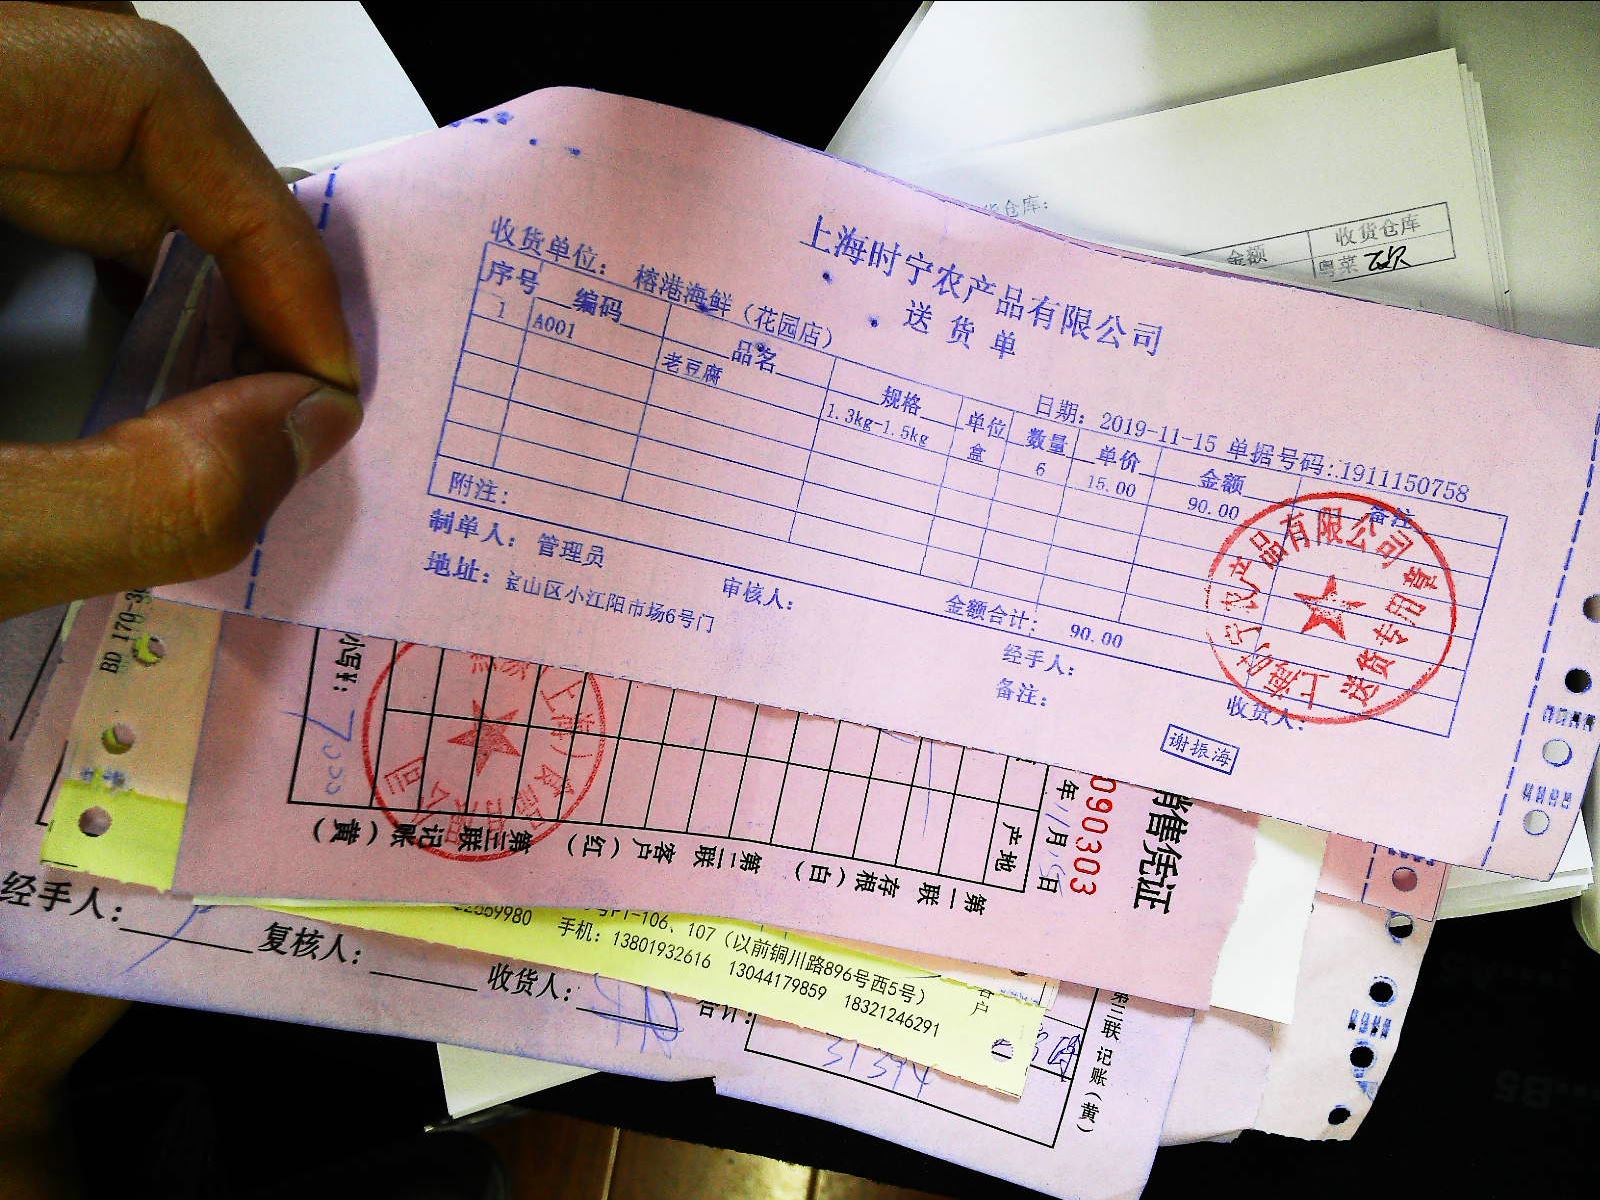 上海时宁农产品有限公司
送货单
收货单位：榕港海鲜（花园店）
日期：2019-11-15 单据号码：.1911150758
序号 编码 品名 规格 单位 数量 单价 金额 备注
1 A001 老豆腐 1.3kg-1.5kg 盒 6 15.00 90.00
附注：
金额合计： 90.00
制单人：管理员 审核人： 经手人： 收货人：
地址：宝山区小江阳市场6号门 备注：
谢振海
上海时宁农产品有限公司
送货专用章
货仓库：
金额 收货仓库
粤菜
BD 170-3
销售凭证
090303
年11月15日
产地
第一联 存根（白） 第二联 客户（红） 第三联 记账（黄）
106、107（以前铜川路896号西5号）
手机：13801932616 13044179859 18321246291
客户
经手人： 复核人： 收货人：
合计：
第三联 记账（黄）